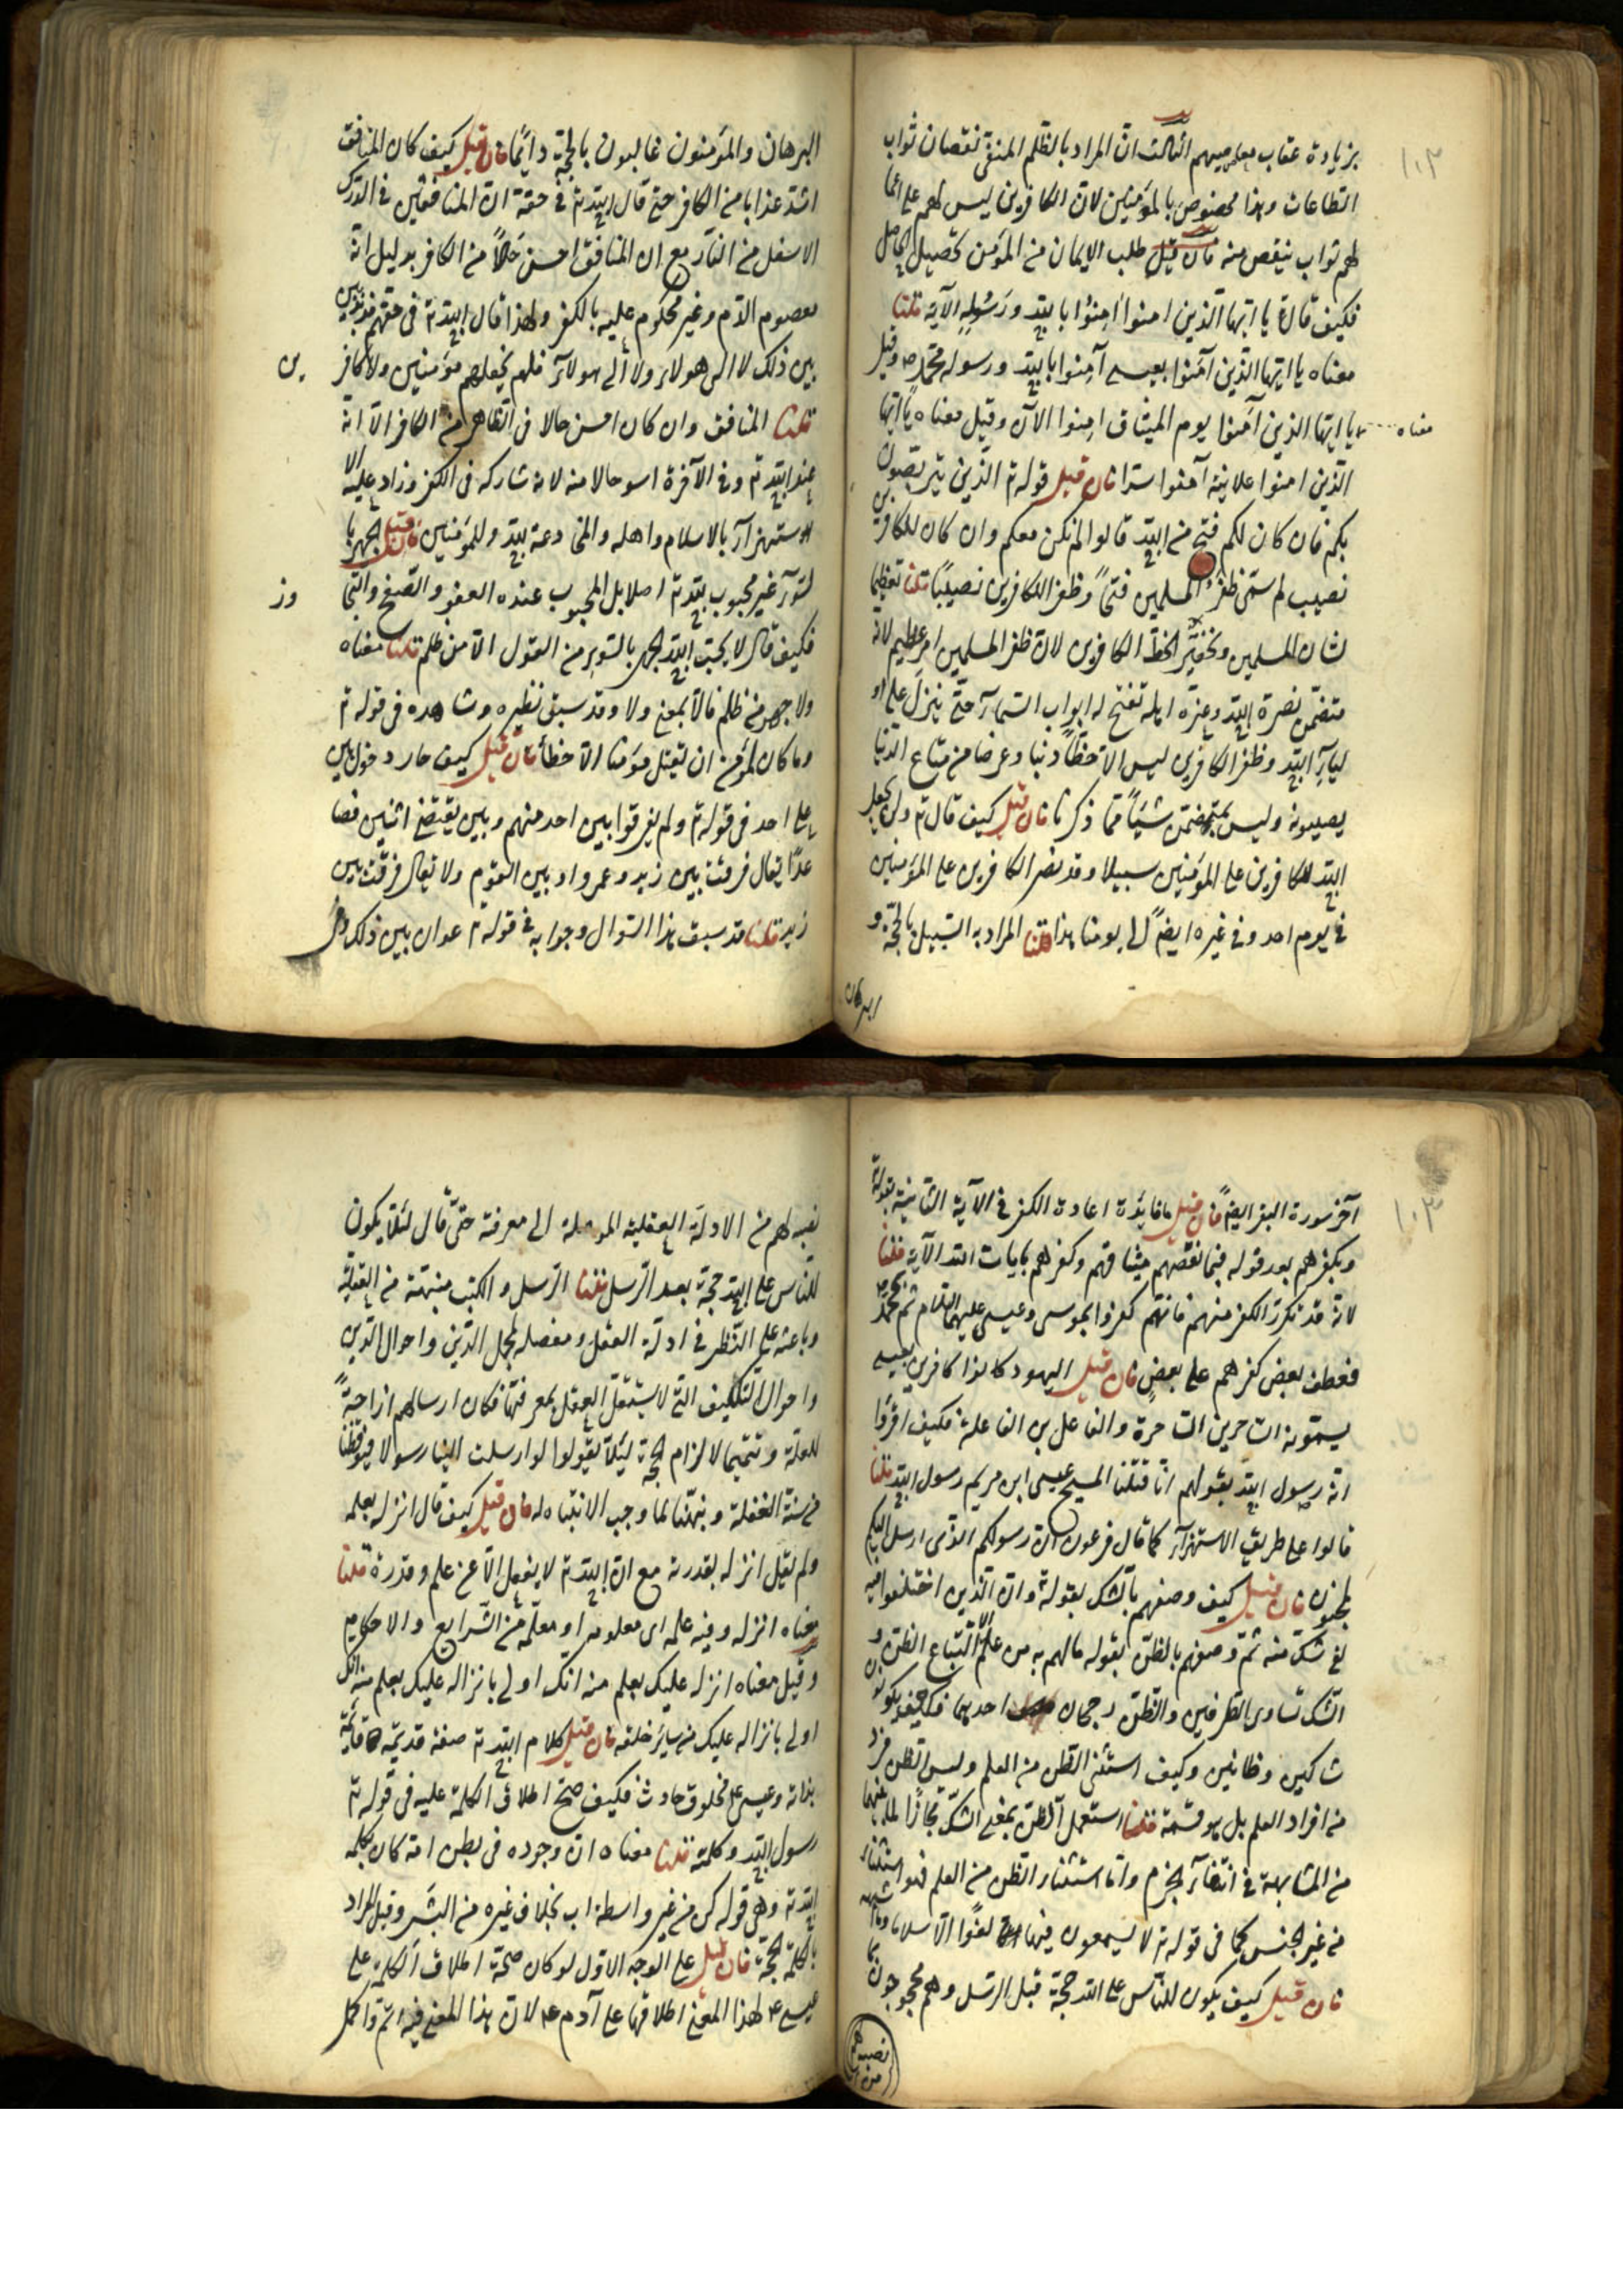 بزيادة عقاب معاصيهم الثالث ان المراد بالظلم المنفي نقصان ثواب
الطاعات وهذا مخصوص بالمؤمنين لان الكافرين ليس لهم على اعما
لهم ثواب ينقص منه فان قيل طلب الايمان من المؤمن تحصيل الحاصل
فكيف قال تم يا ايها الذين امنوا امنوا بالله ورسوله الآية قلنا
معناه يا ايها الذين آمنوا بعيسى آمنوا بالله ورسوله محمد ص وقيل
معناه
يا ايها الذين آمنوا يوم الميثاق امنوا الآن وقيل معناه يا ايها
الذين امنوا علانية آمنوا سرا فان قيل قوله تم الذين يتربصون
بكم فان كان لكم فتح من الله قالوا الم نكن معكم وان كان للكافرين
نصيب لم سمى ظفر المسلمين فتحاً وظفر الكافرين نصيباً قلنا تعظيما
لشان المسلمين وتحقير الحظ الكافرين لان ظفر المسلمين امر عظيم لانه
متضمن نصرة الله وعزة اهله تفتح له ابواب السماء حتى ينزل على او
لياء الله وظفر الكافرين ليس الا حظاً دنيا وعرضا من متاع الدنيا
يصيبونه وليس بمتضمن شيئاً مما ذكرنا فان قيل كيف قال تم ولن يجعل
الله للكافرين على المؤمنين سبيلا وقد نصر الكافرين على المؤمنين
في يوم احد وفي غيره ايضاً الى يومنا هذا قلنا المراد به السبيل بالحجة و
البرهان
البرهان والمؤمنون غالبون بالحجة دائما فان قيل كيف كان المنافق
اشد عذابا من الكافر حتى قال الله تم في حقه ان المنافقين في الدرك
الاسفل من النار مع ان المنافق احسن حالاً من الكافر بدليل انه
معصوم الدم وغير محكوم عليه بالكفر ولهذا قال الله تم في حقهم مذبذبين
بين ذلك لا الى هولاء ولا الى هولاء فلم يجعلهم مؤمنين ولا كافر
ين
قلنا المنافق وان كان احسن حالا في الظاهر من الكافر الا انه
عند الله تم وفي الآخرة اسو حالا منه لانه شاركه في الكفر وزاد عليه الا
لاستهزاء بالاسلام واهله والمخادعة لله وللمؤمنين فان قيل الجهر با
لسوء غير محبوب لله تم اصلا بل المحبوب عنده العفو والصفح والتجا
وز
فكيف قال لا يحب الله الجهر بالسوء من القول الا من ظلم قلنا معناه
ولا جهر من ظلم فالا بمعنى ولا وقد سبق نظيره وشاهده في قوله تم
وما كان لمؤمن ان يقتل مؤمنا الا خطأ فان قيل كيف جاز دخول بين
على احد في قوله تم ولم يفرقوا بين احد منهم وبين يقتضى اثنين فصا
عدًا يقال فرقت بين زيد وعمرو او بين القوم ولا يقال فرقت بين
زيد قلنا قد سبق هذا السوال وجوابه في قوله تم عوان بين ذلك وفي
آخر سورة البقر ايضاً فان قيل ما فائدة اعادة الكفر في الآية الثانية بقوله تم
وبكفرهم بعد قوله فبما نقضهم ميثاقهم وكفرهم بايات الله الآية قلنا
لانه قد تكرر الكفر منهم فانهم كفروا بموسى وعيسى عليهما السلام ثم بمحمد ص
فعطف بعض كفرهم على بعض فان قيل اليهود كانوا كافرين بعيسى
يسمونه الساحر بن الساحرة والفاعل بن الفاعلة فكيف اقروا
انه رسول الله بقولهم انا قتلنا المسيح عيسى ابن مريم رسول الله قلنا
قالوا على طريق الاستهزاء كما قال فرعون ان رسولكم الذى ارسل اليكم
لمجنون فان قيل كيف وصفهم بالشك بقوله وان الذين اختلفوا فيه
لفي شك منه ثم وصفهم بالظن بقوله ما لهم به من علم الا اتباع الظن و
الشك تساوى الطرفين والظن رجحان احدهما فكيف يكونون
شاكين وظانين وكيف استثنى الظن من العلم وليس الظن فرد
من افراد العلم بل هو قسمه قلنا استعمل الظن بمعنى الشك مجازًا لما بينهما
من المشابهة في انتفاء الجزم واما استثناء الظن من العلم فهو استثناء
من غير الجنس كما في قوله تم لا يسمعون فيها لغوًا الا سلاما
فان قيل كيف يكون للناس على الله حجة قبل الرسل وهم محجوجون بما
نصبه لهم من ا
نصبه لهم من الادلة العقلية الموصلة الى معرفته حتى قال لئلا يكون
للناس على الله حجة بعد الرسل قلنا الرسل والكتب منبهة من الغفلة
وباعثه على النظر في ادلة العقل ومفصله لمجمل الدين واحوال الدين
واحوال التكليف التى لا يستقل العقل بمعرفتها فكان ارسالهم ازاحةً
للعلة وتتميما لالزام الحجة ليئلا يقولوا لوا رسلت الينا رسولا فيوقظنا
من سنة الغفلة وينبهنا لما وجب الانتباه له فان قيل كيف قال انزله بعلمه
ولم يقل انزله بقدرته مع ان الله تم لا يفعل الا عن علم وقدرة قلنا
معناه انزله وفيه علمه اى معلومه او معلمه من الشرايع والاحكام
وقيل معناه انزله عليك بعلم منه انك اولى بانزاله عليك بعلم منه انك
اولى بانزاله عليك من ساير خلقه فان قيل كلام الله تم صفة قديمة قايمة
بذاته وعيسى ع مخلوق حادث فكيف صح اطلاق الكلمة عليه في قوله تم
رسول الله وكلمته قلنا معناه ان وجوده في بطن امه كان بكلمة
الله تم وهى قوله كن من غير واسطة اب بخلاف غيره من البشر وقيل المراد
بالكلمة الحجة فان قيل على الوجه الاول لو كان صحة اطلاق الكلمة على
عيسى ع لهذا المعنى اطلاقها على آدم ع لان هذا المعنى فيه اتم واكمل